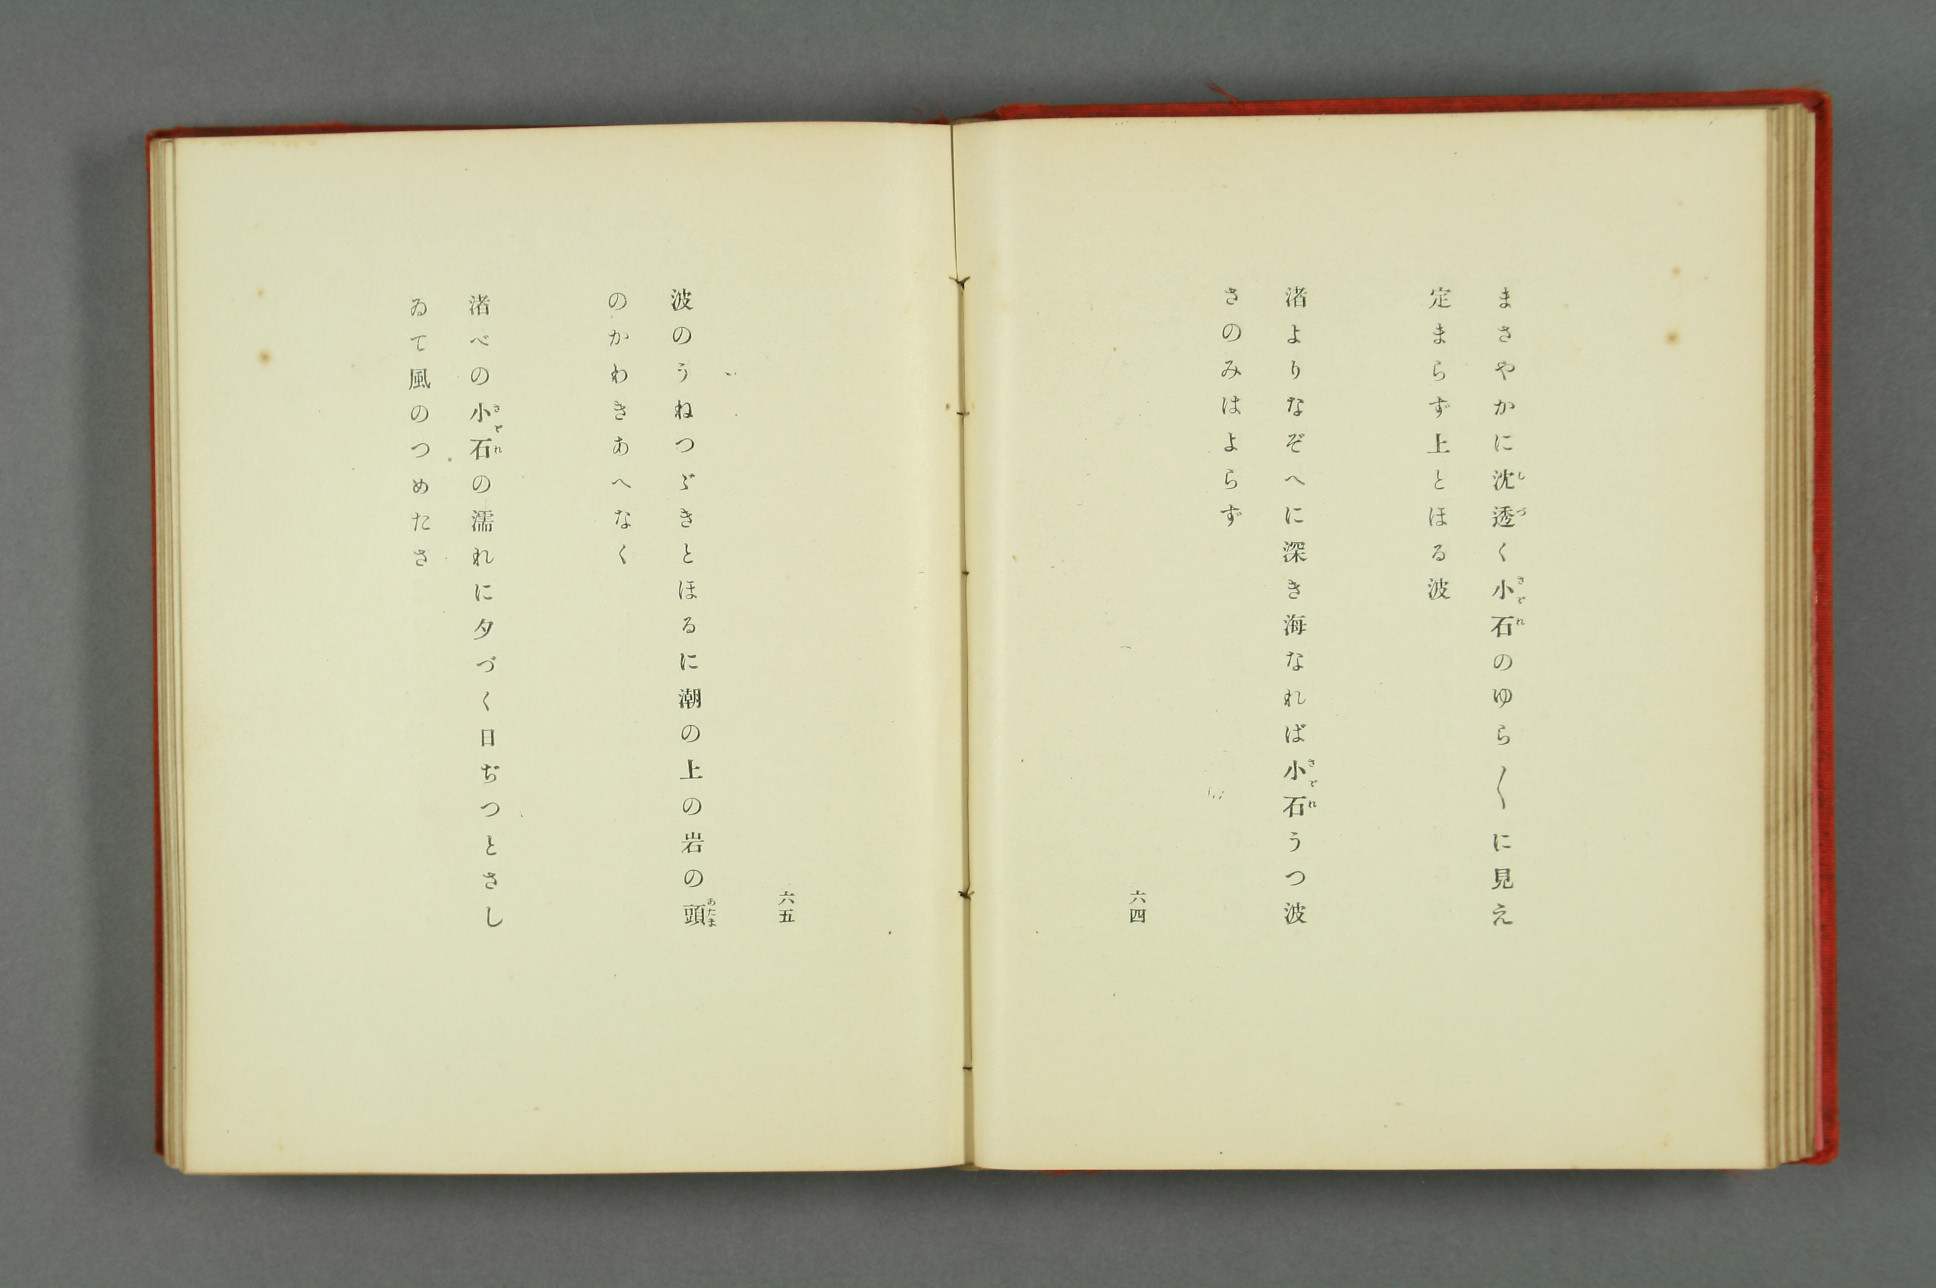 まさやかに沈透く小石のゆら〱に見え
定まらず上とほる波
渚よりなぞへに深き海なれば小石うつ波
さのみはよらず
六四
六五
波のうねつゞきとほるに潮の上の岩の頭
のかわきあへなく
渚べの小石の濡れに夕づく日ぢつとさし
ゐて風のつめたさ